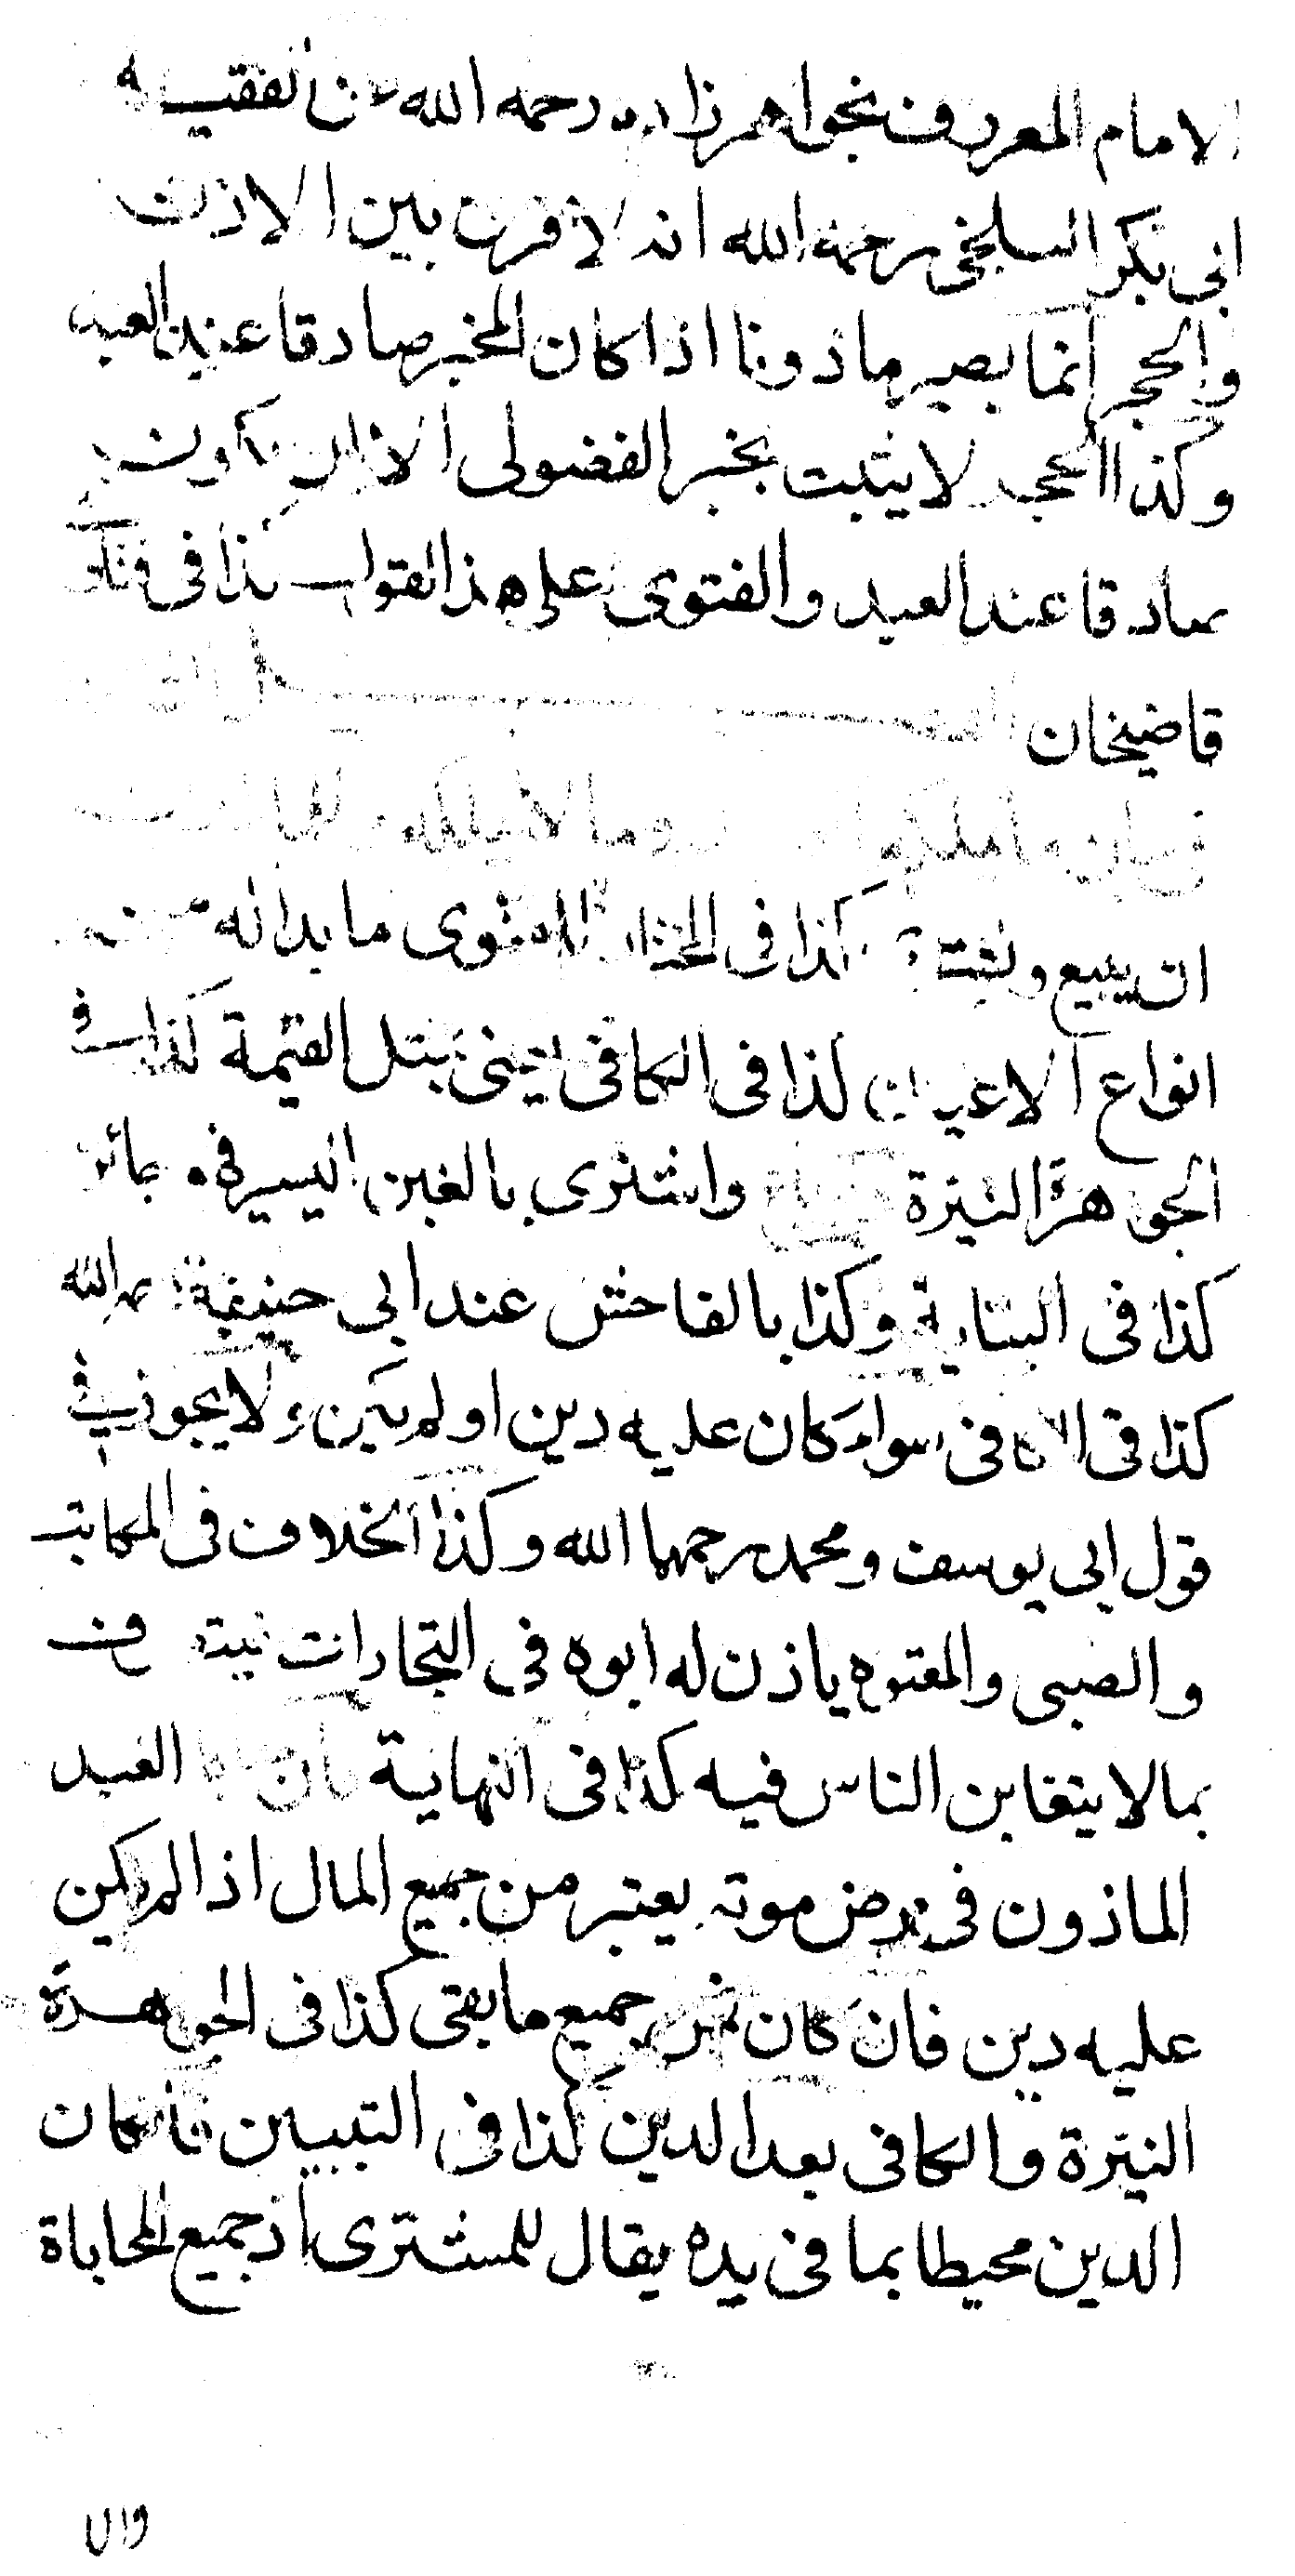 الامام المعروف بخواهرزاده رحمه الله عن الفقيه
ابى بكر البلخى رحمه الله انه لا فرق بين الاذن
والحجر انما يصير ماذونا اذا كان المخبر صادقا عند العبد
وكذا الحجر لا يثبت بخبر الفضولى الا ان يكون
صادقا عند العبد والفتوى على هذا القول كذا فى فتاوى
قاضيخان
ما يملكه وما لا يملكه
ان يبيع ويشترى كذا فى المختار للفتوى ما بدا له من
انواع الاعيان كذا فى الكافى يعنى بمثل القيمة كذا فى
الجوهرة النيرة واشترى بالغبن اليسير فهو جائز
كذا فى البناية وكذا بالفاحش عند ابى حنيفة رحمه الله
كذا فى الكافى سواء كان عليه دين او لم يكن ولا يجوز فى
قول ابى يوسف ومحمد رحمهما الله وكذا الخلاف فى المكاتب
والصبى والمعتوه ياذن له ابوه فى التجارات فيتصرف
بما لا يتغابن الناس فيه كذا فى النهاية العبد
الماذون فى مرض موته يعتبر من جميع المال اذا لم يكن
عليه دين فان كان فمن جميع ما بقى كذا فى الجوهرة
النيرة والكافى بعد الدين كذا فى التبيين فان كان
الدين محيطا بما فى يده يقال للمشترى اد جميع المحاباة
وال